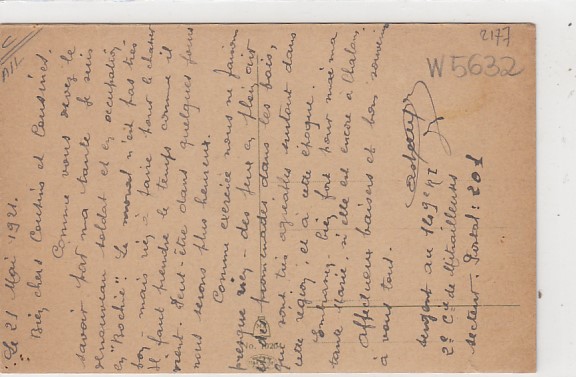 Le 21 Mai 1921.
Bien chers Cousins et Cousines.
Comme vous devez le
savoir par ma tante je suis
de nouveau soldat et en occupation
en "Bochie". Le moral n'est pas très
bon, mais rien à faire pour le
Il faut prendre le temps comme il
vient. Peut-être dans quelques jours
nous serons plus heureux.
Comme exercice nous ne faisons
presque rien, des jeux en plein air
et des promenades dans les bois,
qui sont très agréables surtout dans
cette région, et à cette époque.
Embrassez bien fort pour moi ma
tante Marie, si elle est encore à Chalon,
Affectueux baisers et bon souvenir
à vous tous.
Sergent au 149e RI
2e Cie de Mitrailleuses
Secteur Postal : 201
2177
W5632